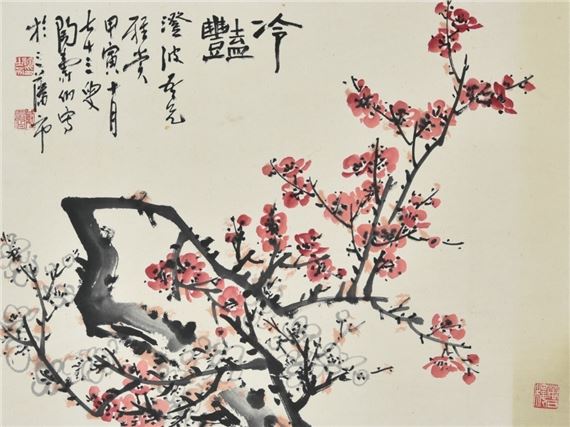 冷豔
澄波吾兄
雅賞
甲寅十月
七十三叟
陶壽伯寫
於三藩市